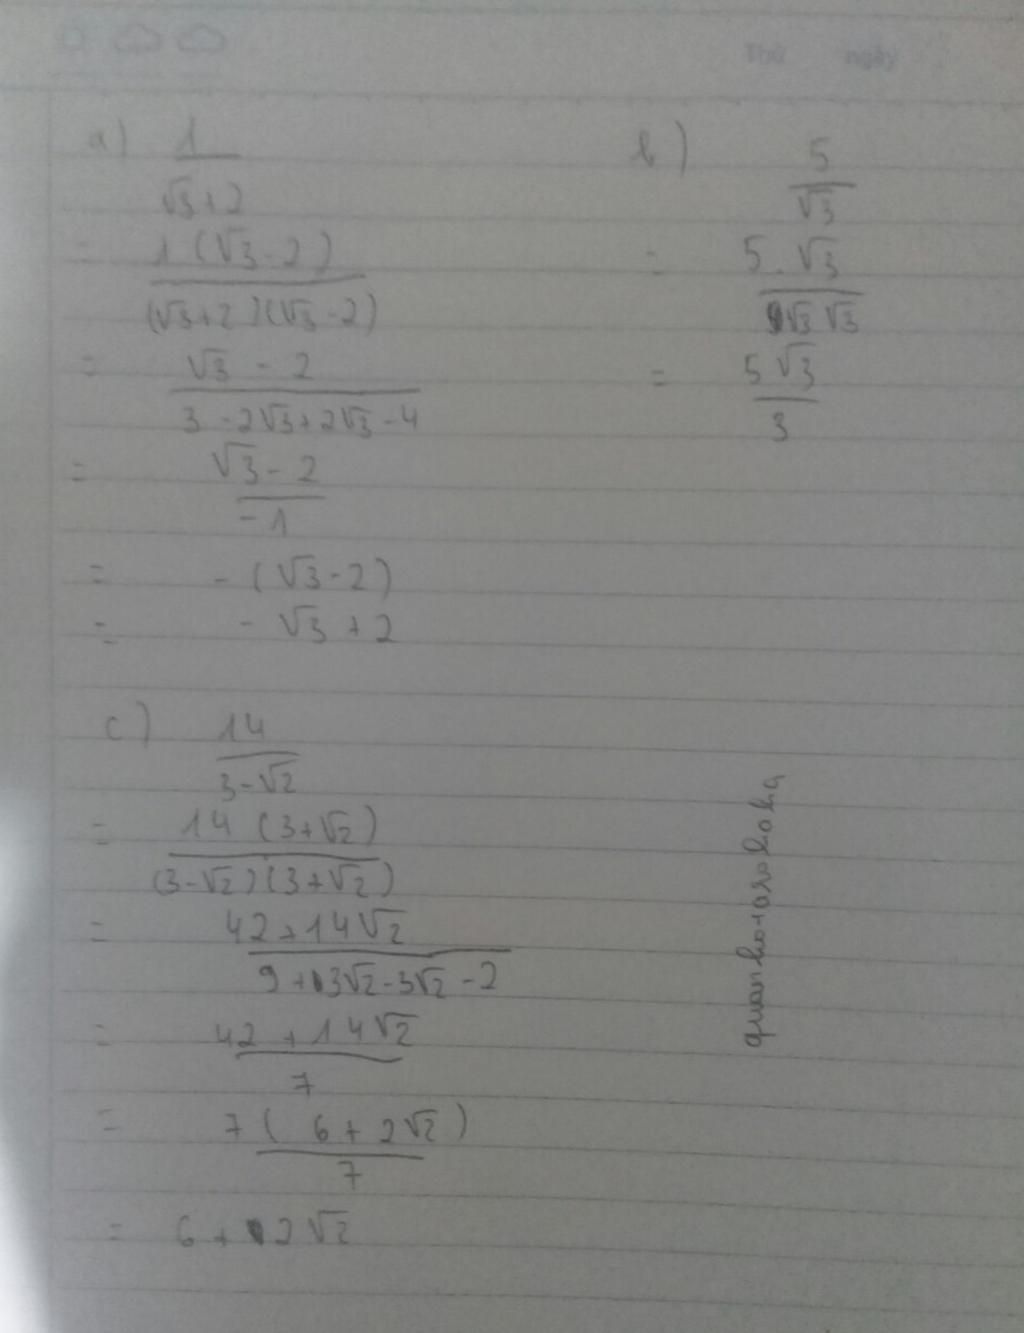 Thứ ngày
a) 1
√3+2
= 1(√3-2)
(√3+2)(√3-2)
= √3 - 2
3-2√3+2√3-4
= √3-2
-1
= -(√3-2)
= -√3+2
b) 5
√3
= 5.√3
√3 √3
= 5√3
3
c) 14
3-√2
= 14 (3+√2)
(3-√2)(3+√2)
= 42+14√2
9+3√2-3√2-2
= 42+14√2
7
= 7(6+2√2)
7
= 6+2√2